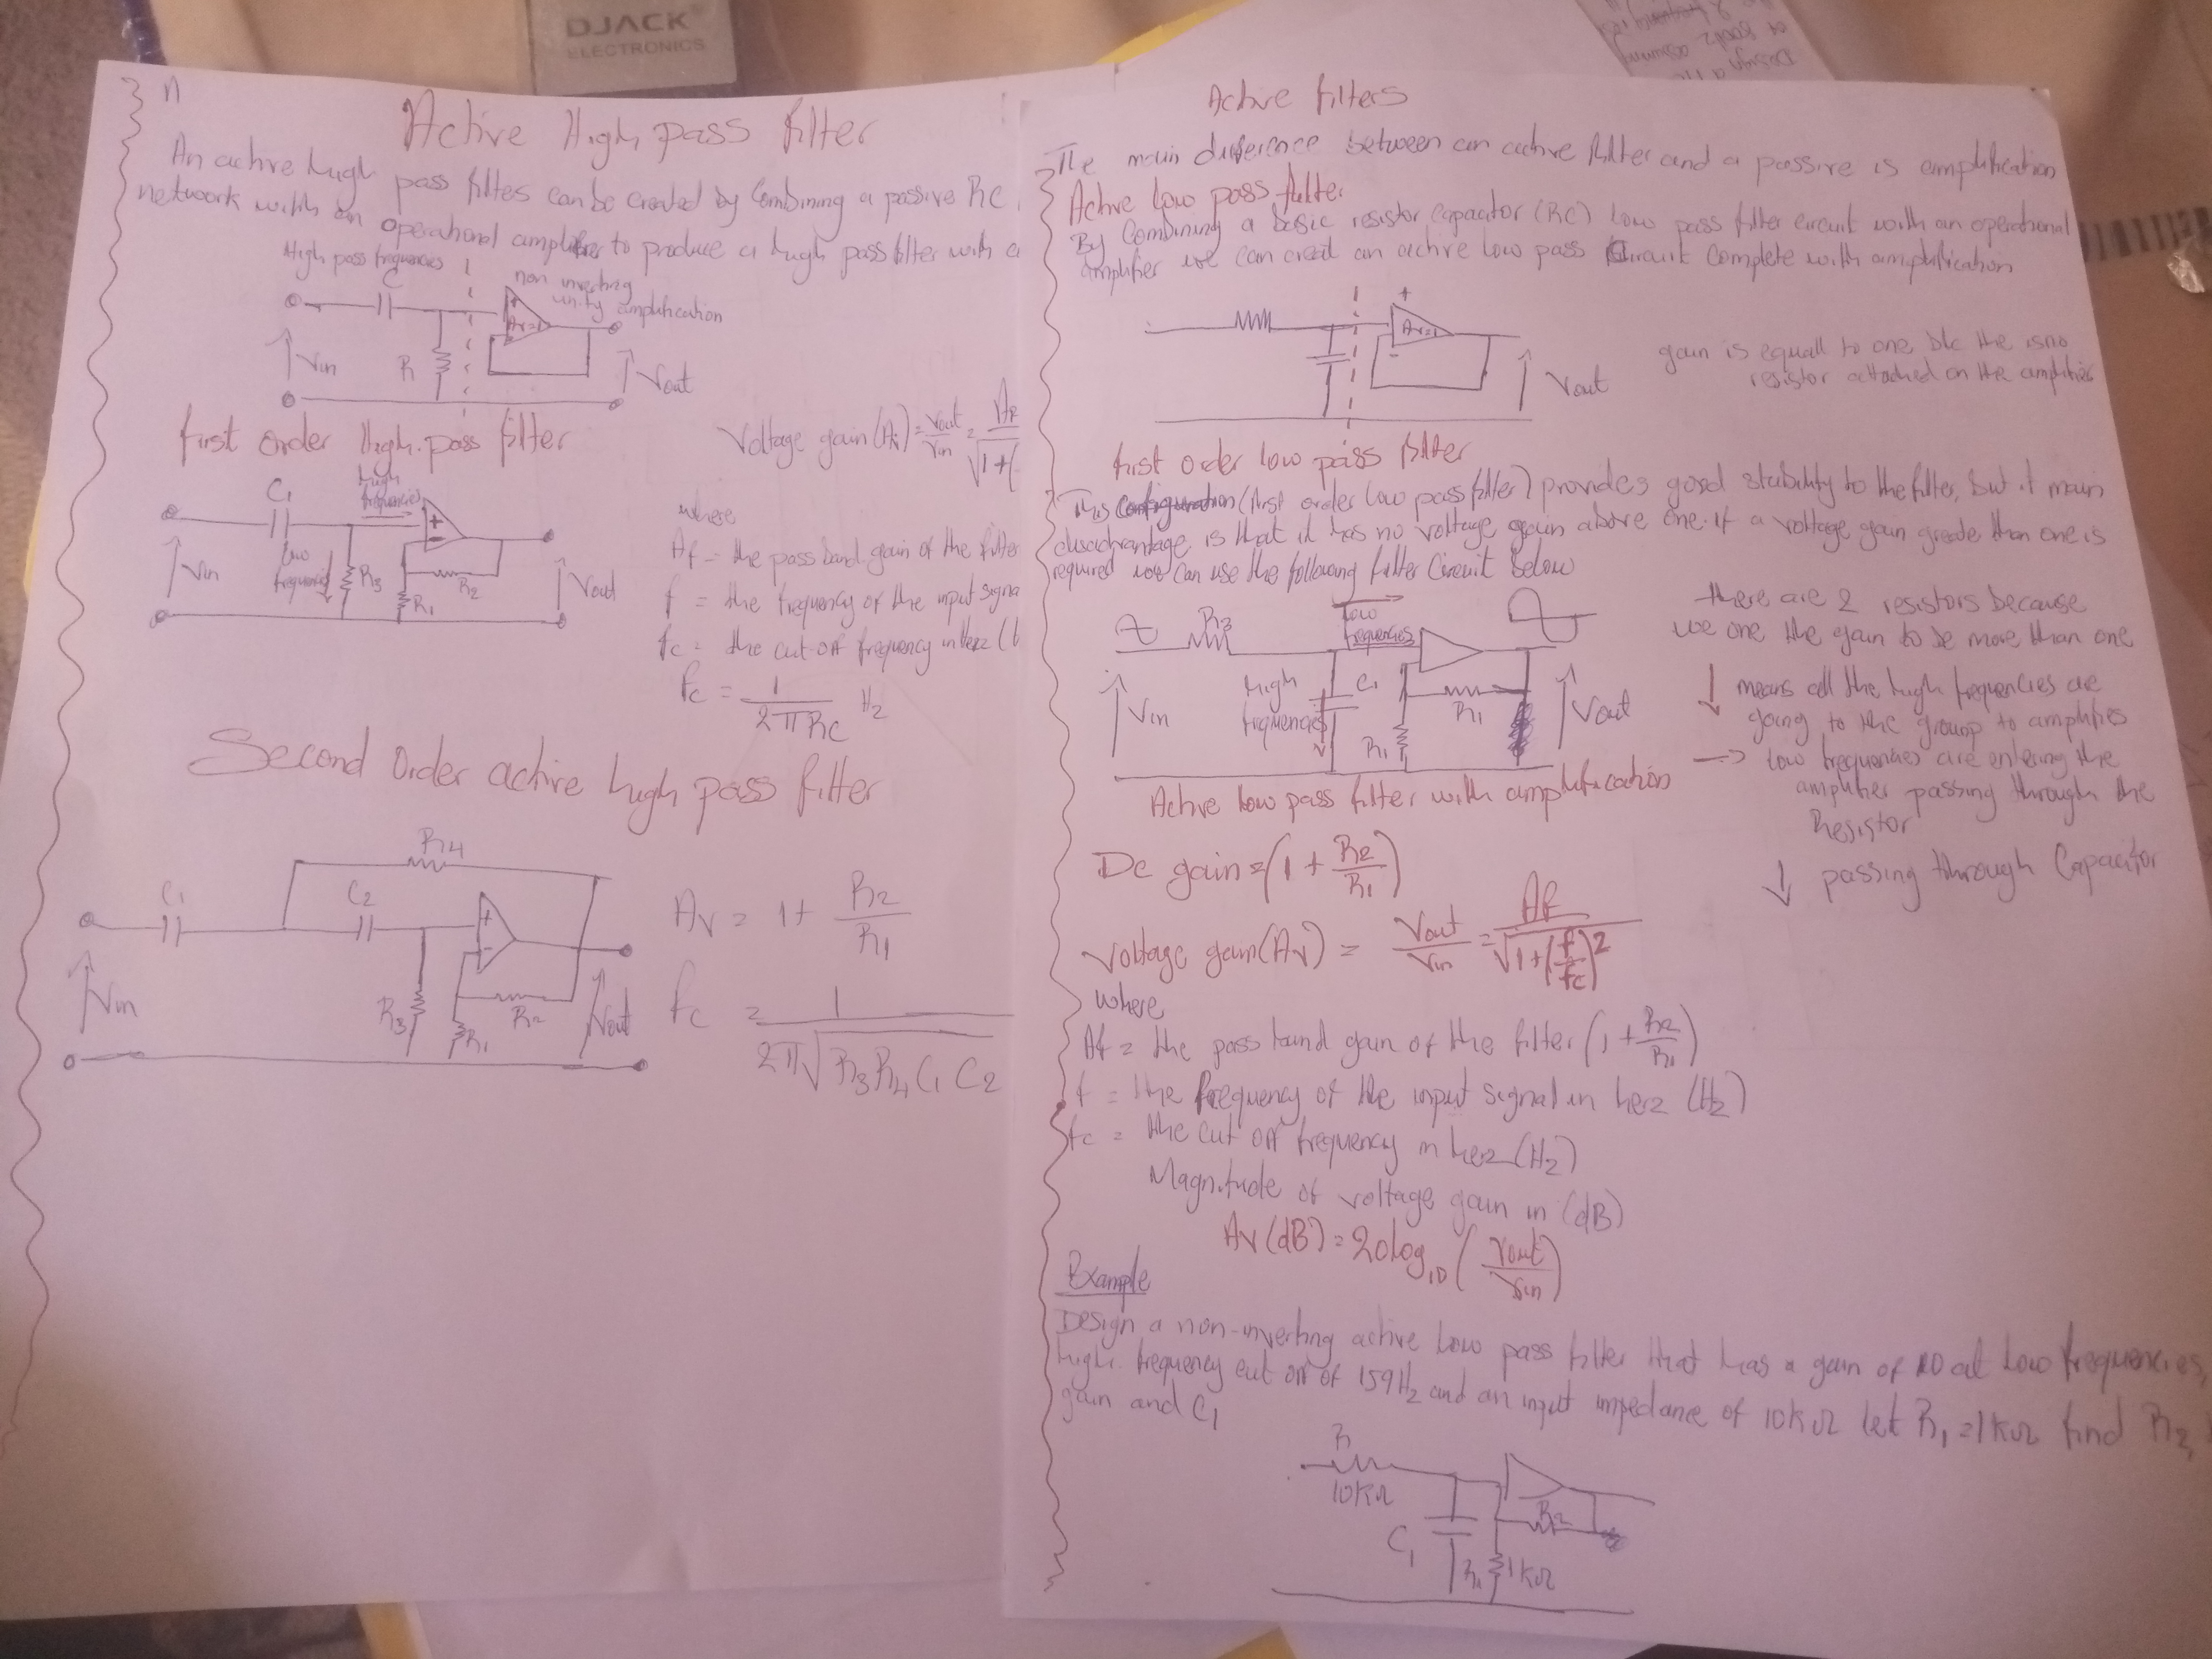 DJACK
ELECTRONICS
Active High pass filter
An active high pass filtes can be created by Combining a passive RC
network with an operational amplifier to produce a high pass filter with a
High pass frequencies
C
non inverting
unity amplification
Av=1
Vin
R
Vout
first order High pass filter
Voltage gain (Av) = Vout/Vin = AF/√1+(
C1
high
frequencies
+
Vin
low
frequencies
R3
R2
R1
Vout
where
Af = the pass band gain of the filter
f = the frequency of the input signa
fc = the cut off frequency in Herz (
fc = 1/2πRC Hz
Second Order active high pass filter
R4
C1
C2
+
-
Vin
R3
R1
R2
Vout
Av = 1 + R2/R1
fc = 1/2π√R3R4C1C2
Active filters
The main difference between an active filter and a passive is amplification
Active low pass filter
By Combining a basic resistor Capacitor (RC) low pass filter circuit with an operational
amplifier we can creat an active low pass Circuit Complete with amplification
+
Av=1
-
Vout
gain is equall to one b/c the is no
resistor attached on the amplifier
first order low pass filter
This configuration (first order low pass filter) provides good stability to the filter, but it main
disadvantage is that it has no voltage gain above one. if a voltage gain greate than one is
required we can use the following filter Circuit below
R3
low
frequencies
Vin
high
frequencies
C1
R1
R1
Vout
there are 2 resistors because
we one the gain to be more than one
↓ means all the high frequencies are
going to the group to amplifies
→ low frequencies are entering the
amplifier passing through the
Resistor
↓ passing through Capacitor
Active low pass filter with amplification
Dc gain = (1 + R2/R1)
Voltage gain (Av) = Vout/Vin = Af/√1+(f/fc)2
where
Af = the pass band gain of the filter (1 + R2/R1)
f = the frequency of the input signal in herz (Hz)
fc = the cut off frequency in herz (Hz)
Magnitude of voltage gain in (dB)
Av (dB) = 20log10 (Vout/Vin)
Example
Design a non-inverting active low pass filter that has a gain of 10 at low frequencies,
high frequency cut off of 159Hz and an input impedance of 10KΩ let R1 = 1KΩ find R2,
gain and C1
R
10KΩ
C1
R2
R1
1KΩ